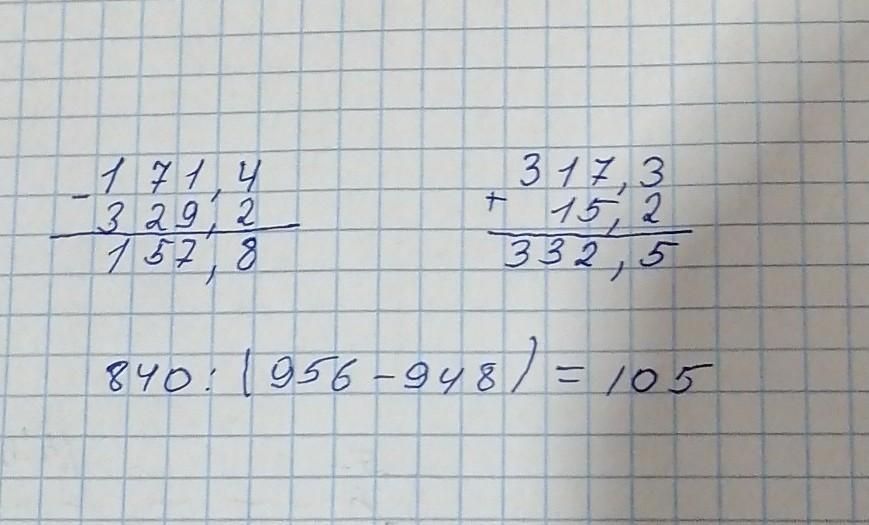 - 171,4
329,2
157,8
317,3
+ 15,2
332,5
840:(956-948)=105